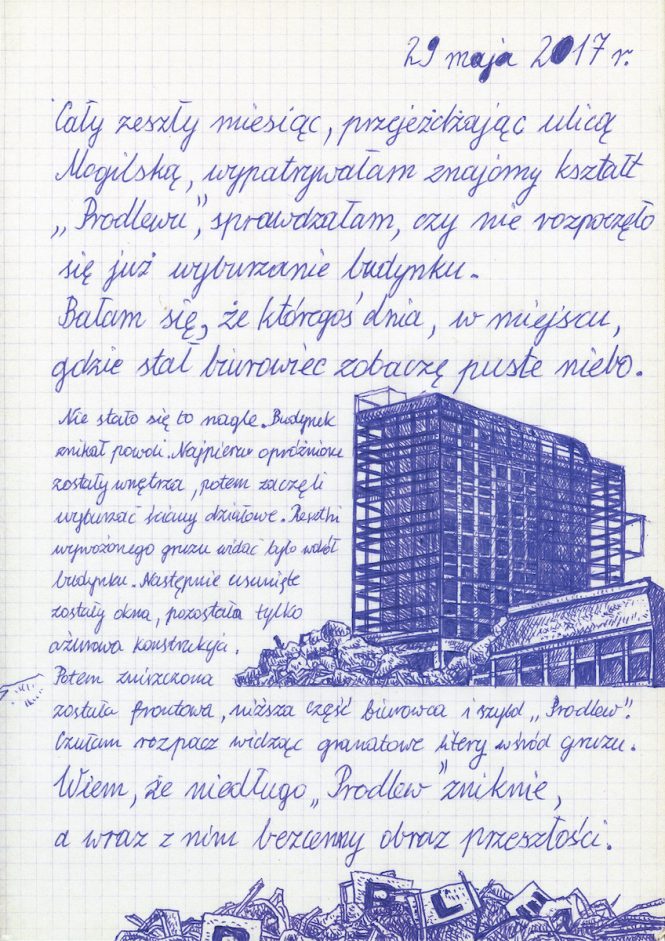 29 maja 2017 r.
Cały zeszły miesiąc, przejeżdżając ulicą
Mogilską, wypatrywałam znajomy kształt
„Prodlewu”, sprawdzałam, czy nie rozpoczęło
się już wyburzanie budynku.
Bałam się, że któregoś dnia, w miejscu,
gdzie stał biurowiec zobaczę puste niebo.
Nie stało się to nagle. Budynek
znikał powoli. Najpierw opróżnione
zostały wnętrza, potem zaczęli
wyburzać ściany działowe. Resztki
wywożonego gruzu widać było wokół
budynku. Następnie usunięte
zostały okna, pozostała tylko
ażurowa konstrukcja.
Potem zniszczona
została frontowa, niższa część biurowca i szyld „Prodlew”.
Czułam rozpacz widząc granatowe litery wśród gruzu.
Wiem, że niedługo „Prodlew” zniknie,
a wraz z nim bezcenny obraz przeszłości.